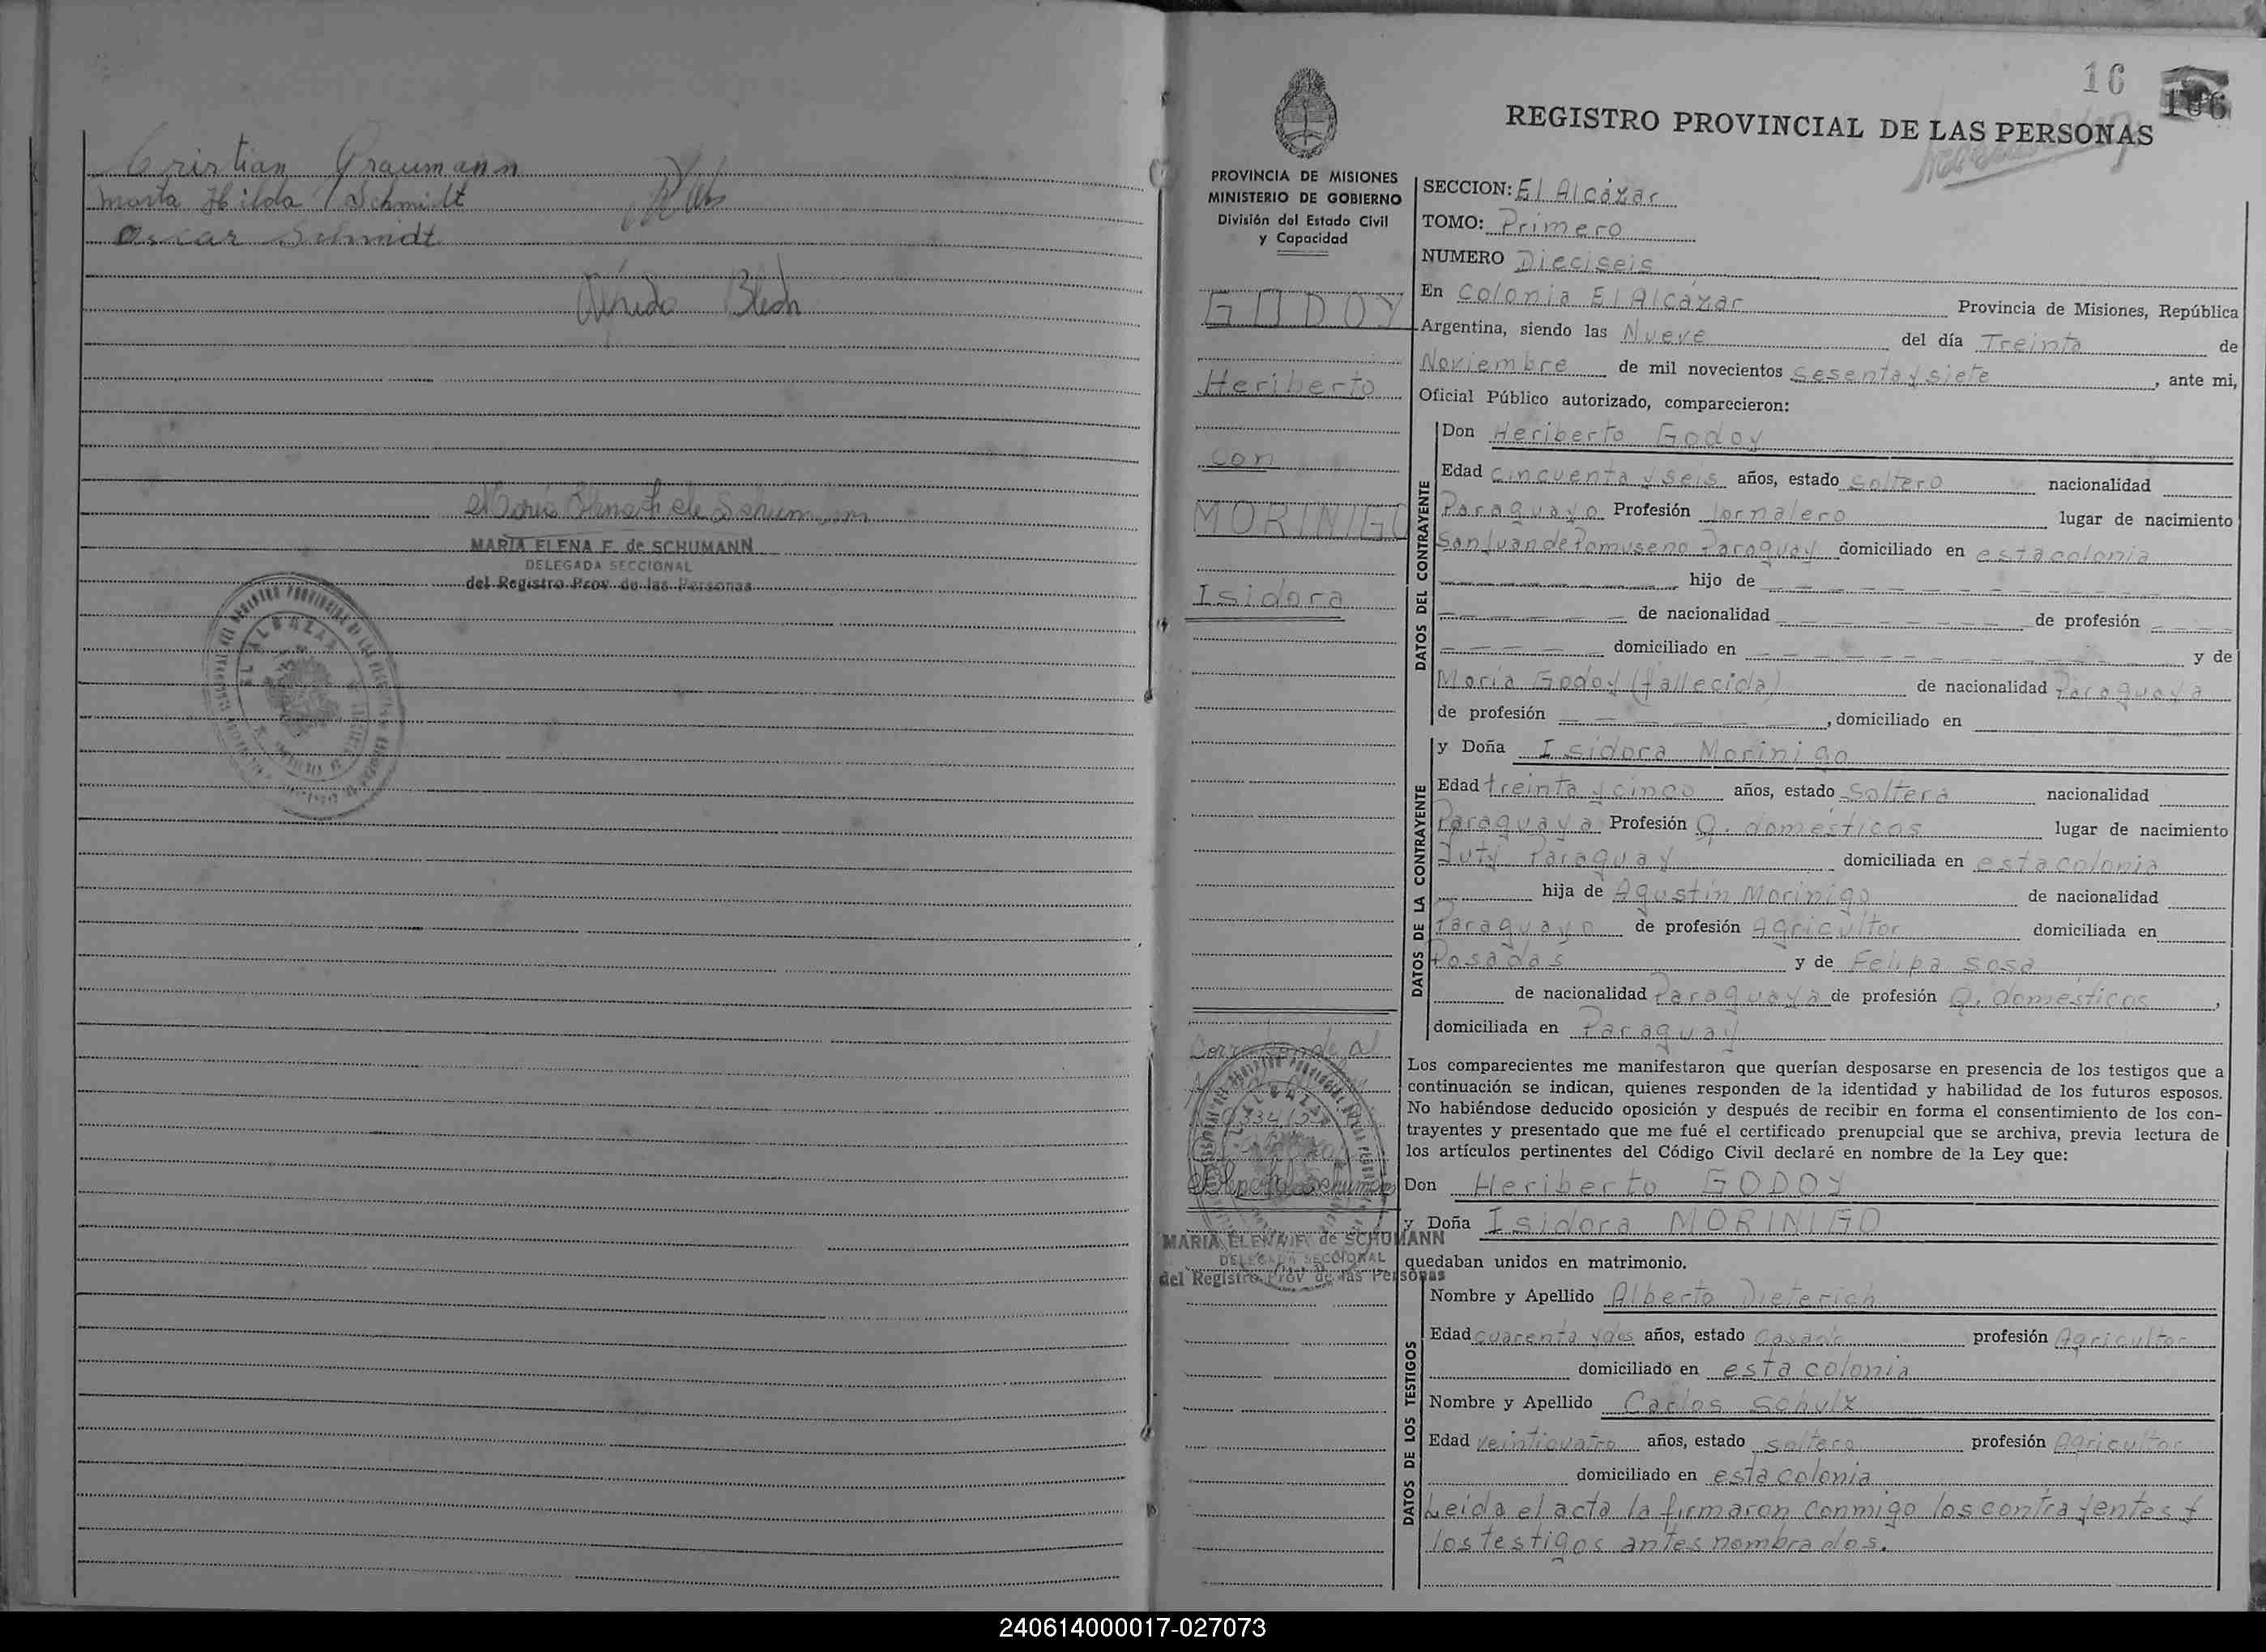 Cristian Graumann
Marta Hilda Schmidt
Oscar Schmidt
Alfredo Blech
María Elena F. de Schumann
MARIA ELENA F. de SCHUMANN
DELEGADA SECCIONAL
del Registro Prov. de las Personas
EL ALCAZAR
16
106
REGISTRO PROVINCIAL DE LAS PERSONAS
PROVINCIA DE MISIONES
MINISTERIO DE GOBIERNO
División del Estado Civil
y Capacidad
GODOY
Heriberto
con
MORINIGO
Isidora
Corresponde al
MARIA ELENA F. de SCHUMANN
DELEGADA SECCIONAL
del Registro Prov de las Personas
SECCION: El Alcázar
TOMO: Primero
NUMERO Dieciseis
En Colonia El Alcázar Provincia de Misiones, República
Argentina, siendo las Nueve del día Treinta de
Noviembre de mil novecientos sesenta y siete, ante mi,
Oficial Público autorizado, comparecieron:
DATOS DEL CONTRAYENTE
Don Heriberto Godoy
Edad cincuenta y seis años, estado soltero nacionalidad
Paraguayo Profesión Jornalero lugar de nacimiento
San Juan de Pomuseno Paraguay domiciliado en esta colonia
hijo de
de nacionalidad de profesión
domiciliado en y de
María Godoy (fallecida) de nacionalidad Paraguaya
de profesión , domiciliado en
DATOS DE LA CONTRAYENTE
y Doña Isidora Morinigo
Edad treinta y cinco años, estado Soltera nacionalidad
Paraguaya Profesión Q. domésticos lugar de nacimiento
Yuty Paraguay domiciliada en esta colonia
hija de Agustín Morinigo de nacionalidad
Paraguayo de profesión Agricultor domiciliada en
Posadas y de Felipa Sosa
de nacionalidad Paraguaya de profesión Q. domésticos,
domiciliada en Paraguay
Los comparecientes me manifestaron que querían desposarse en presencia de los testigos que a
continuación se indican, quienes responden de la identidad y habilidad de los futuros esposos.
No habiéndose deducido oposición y después de recibir en forma el consentimiento de los con-
trayentes y presentado que me fué el certificado prenupcial que se archiva, previa lectura de
los artículos pertinentes del Código Civil declaré en nombre de la Ley que:
Don Heriberto GODOY
y Doña Isidora MORINIGO
quedaban unidos en matrimonio.
DATOS DE LOS TESTIGOS
Nombre y Apellido Alberto Dieterich
Edad cuarenta y dos años, estado Casado profesión Agricultor
domiciliado en esta colonia
Nombre y Apellido Carlos Schulz
Edad veinticuatro años, estado soltero profesión Agricultor
domiciliado en esta colonia
Leida el acta la firmaron conmigo los contrayentes y
los testigos antes nombrados.
240614000017-027073